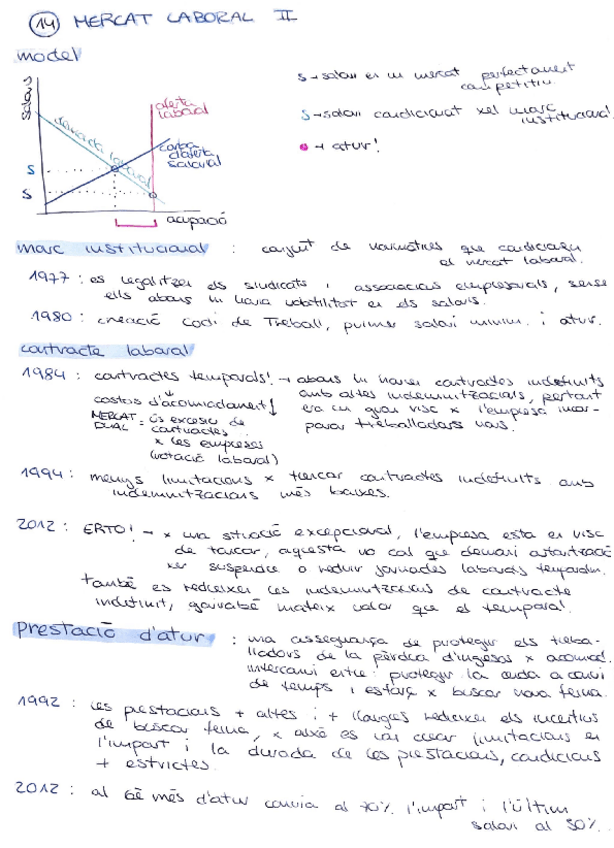 14 MERCAT LABORAL II
model
salaris
demanda laboral
oferta laboral
corba d'oferta salarial
S
S
ocupació
S → salari en un mercat perfectament competitiu.
S → salari condicionat xel marc institucional.
● → atur!
marc institucional : conjunt de normatives que condicionen
el mercat laboral.
1977 : es legalitzen els sindicats i associacions empresarials, sense
ells abans hi havia volatilitat en els salaris.
1980 : creació Codi de Treball, primer salari mínim. i atur.
contracte laboral
1984 : contractes temporals! → abans hi havien contractes indefinits
amb altes indemnitzacions, pertant
era un gran risc x l'empresa incor-
porar treballadors nous.
costos d'acomiadament ↓
MERCAT DUAL : ús excessiu de
contractes
x les empreses
(rotació laboral)
1994 : menys limitacions x trencar contractes indefinits amb
indemnitzacions més baixes.
2012 : ERTO! → x una situació excepcional, l'empresa esta en risc
de tancar, aquesta no cal que demani autorització
xer suspendre o reduir jornades laborals temporalm.
també es redueixen les indemnitzacions de contracte
indefinit, gairabé mateix valor que el temporal.
prestació d'atur : una assegurança de protegir els treba-
lladors de la pèrdua d'ingresos x acomiad.
intercanvi entre: protegir la renda a canvi
de temps i esforç x buscar nova feina.
1992 : les prestacions + altes i + llargues redueixen els incentius
de buscar feina, x això es van crear limitacions en
l'import i la durada de les prestacions, condicions
+ estrictes.
2012 : al 6è més d'atur canvia al 70% l'import i l'últim
salari al 50%.